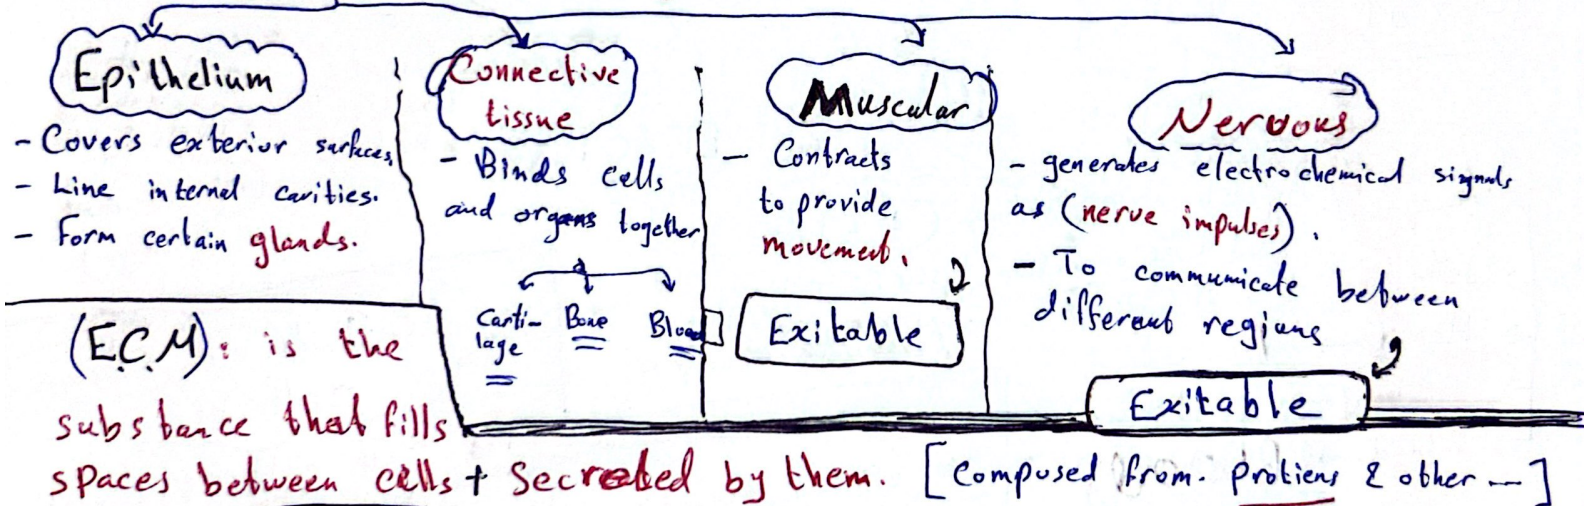 Epithelium
- Covers exterior surfaces
- Line internal cavities.
- Form certain glands.
Connective
tissue
- Binds cells
and organs together
Carti-
lage
Bone
Blood
Muscular
- Contracts
to provide
movement.
Exitable
Nervous
- generates electrochemical signals
as (nerve impulses).
- To communicate between
different regions
Exitable
(E.C.M): is the
substance that fills
spaces between cells + Secreted by them. [Composed from. Protiens & other ---]